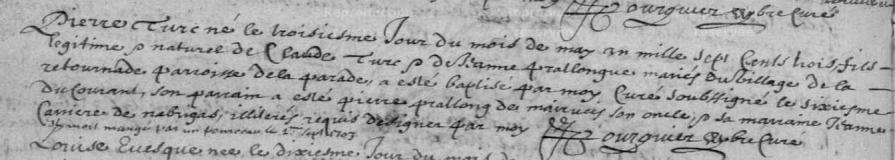 Courguier pbre Curé
Pierre Turc né le troisiesme Jour du mois de may En mille sept Cents trois, fils
legitime & naturel de Claude Turc & de Jeanne prallongue mariés du village de la
retournade parroisse dela parade, a esté baptisé par moy Curé soubsigné le sixiesme
du Courant, son parrain a esté pierre prallong de son oncle, & sa marraine Jeanne
Carriere de nabugas, illiterés requis de signer par moy Courguier pbre Curé
mort mangé par un pourceau le 1er sept 1703
Louise Evesque nee le dixiesme Jour du mois de